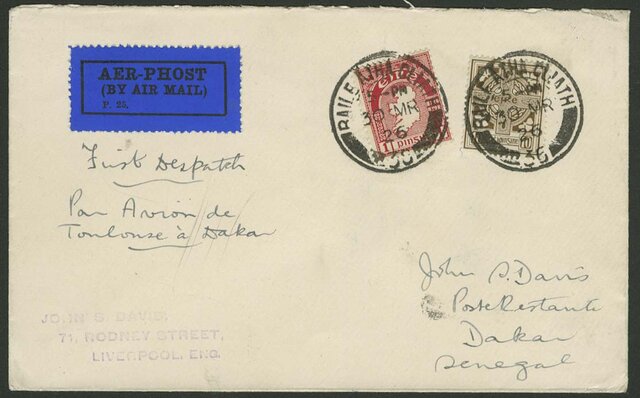 AER-PHOST
(BY AIR MAIL)
P. 25.
BAILE ÁTHA CLIATH
PM
30 MR
26
BAILE ÁTHA CLIATH
PM
30 MR
26
36
1 PINGIN
First Despatch
Par Avion de
Toulouse à Dakar
John S. Davis
Poste Restante
Dakar
Senegal
JOHN S. DAVIS,
71, RODNEY STREET,
LIVERPOOL, ENG.